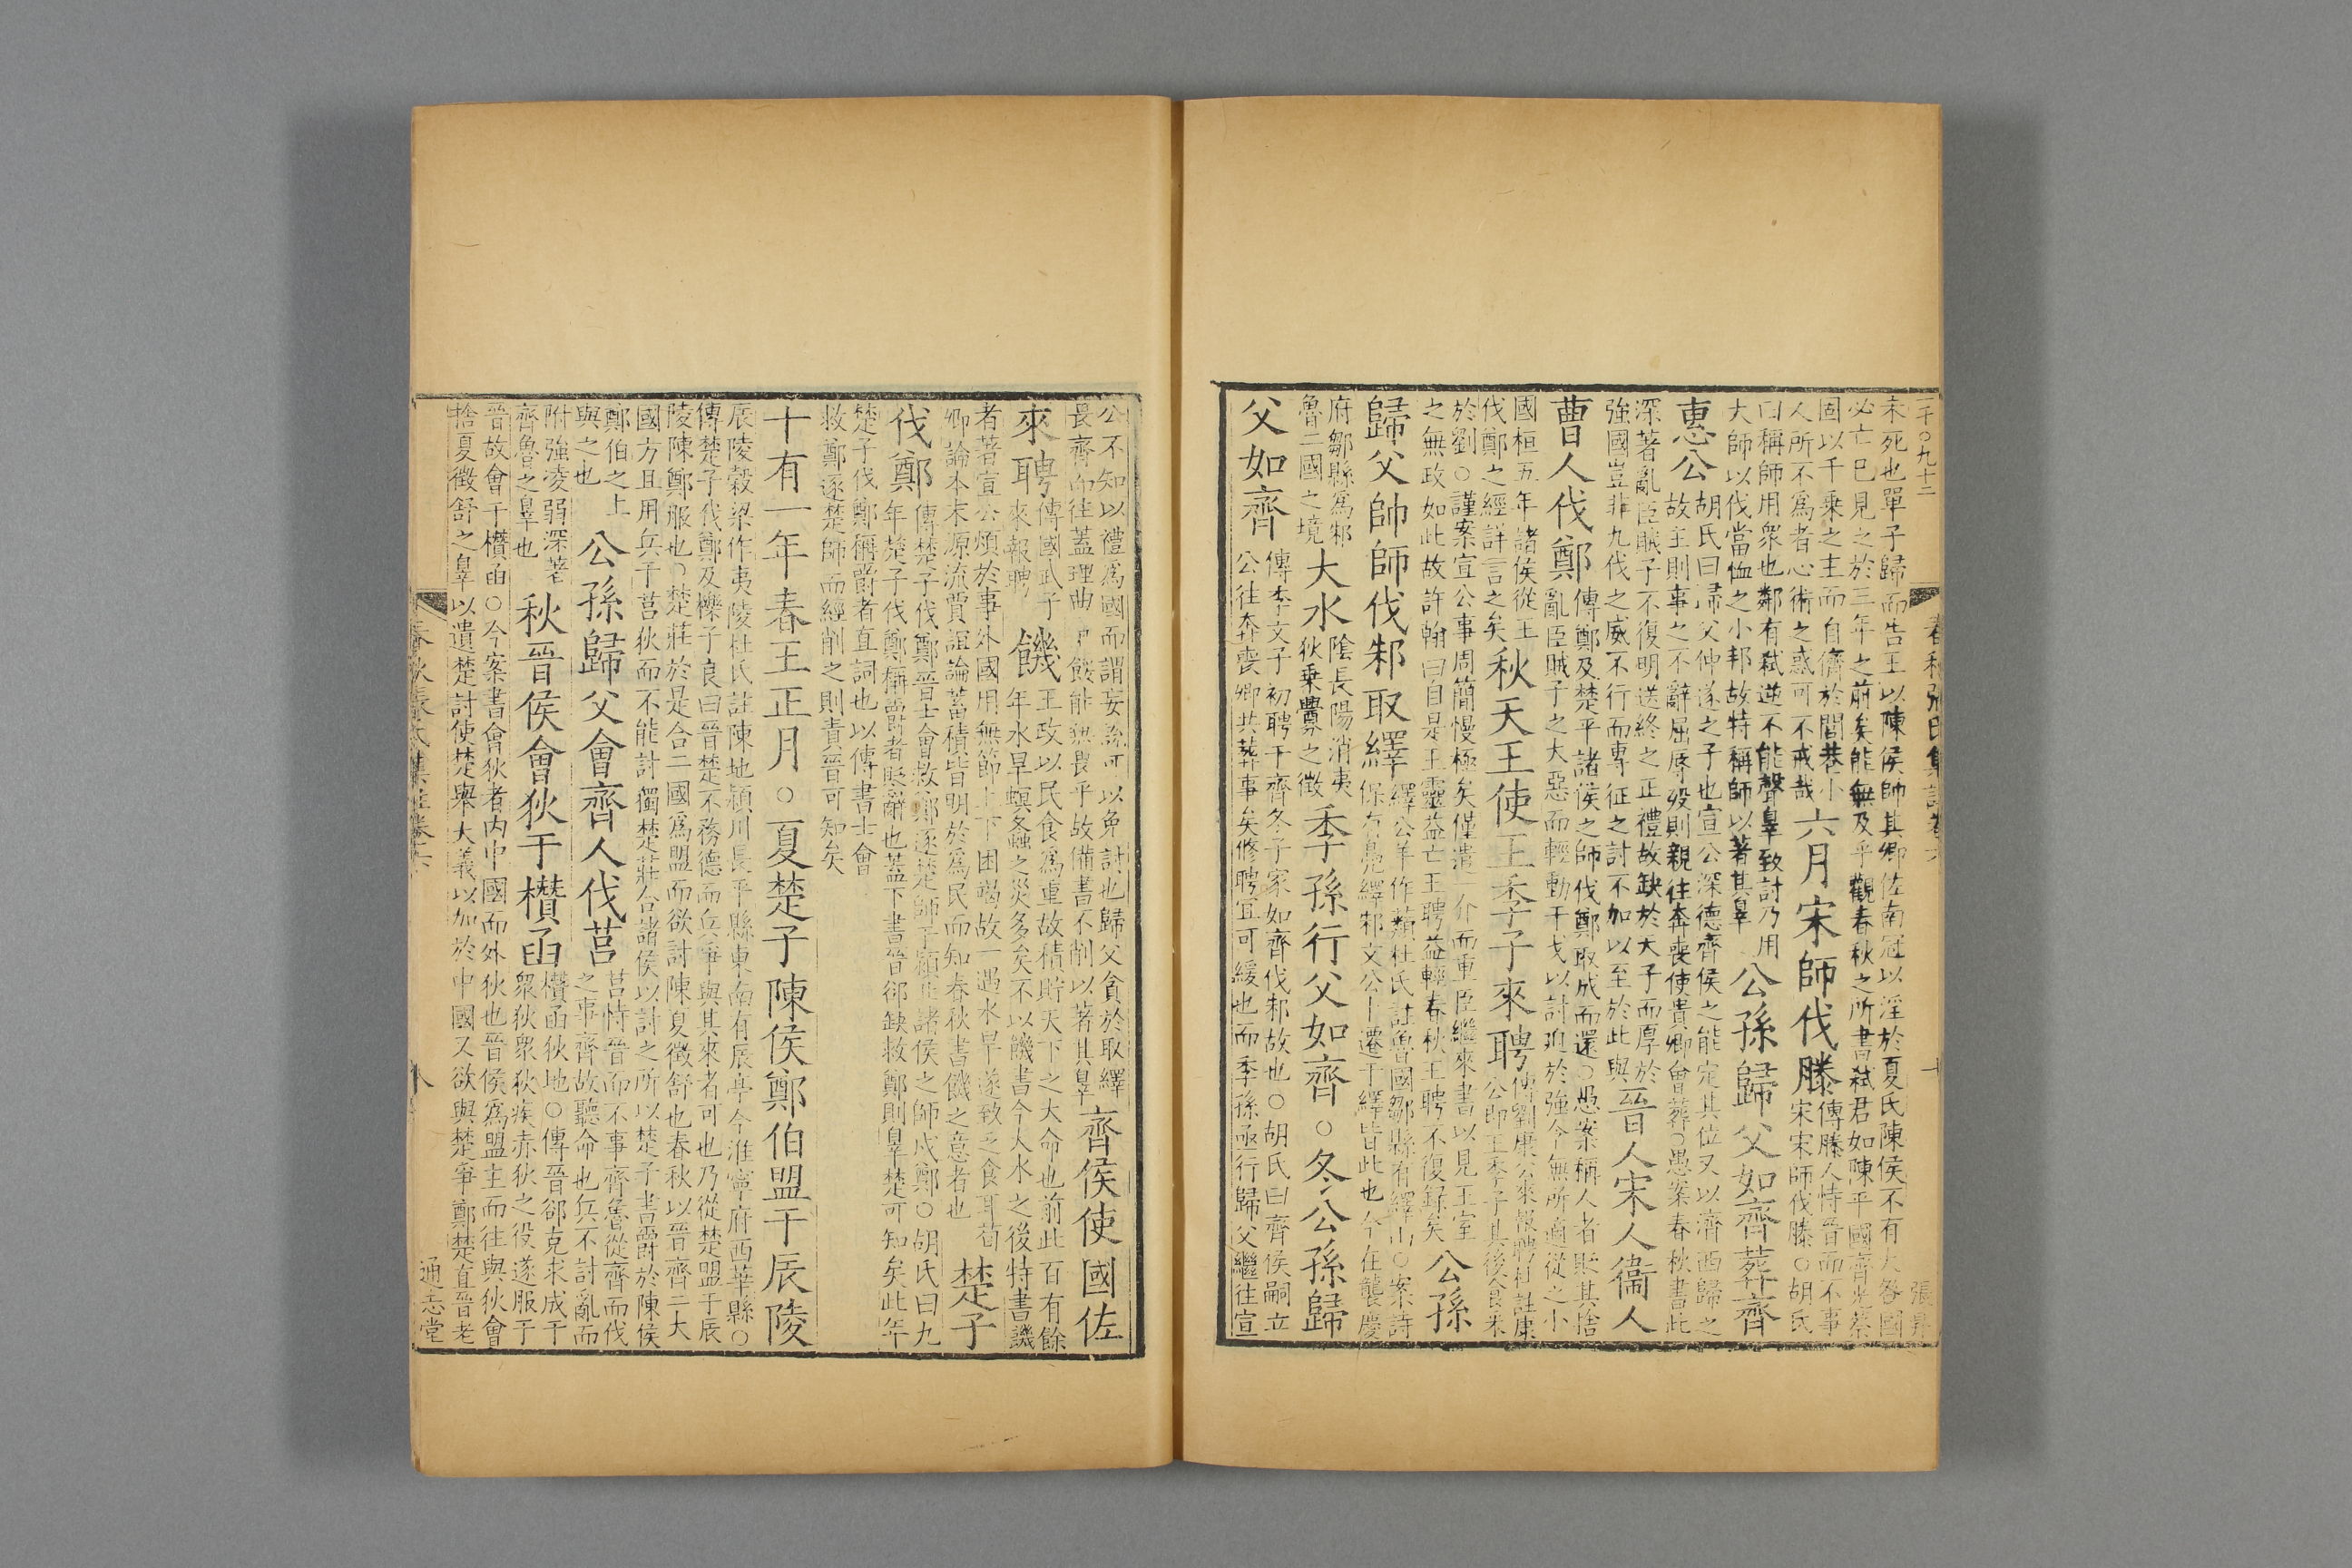 二千〇九十二 春秋張氏集註卷六 十 張鼎
未死也單子歸而告王以陳侯帥其卿佐南冠以淫於夏氏陳侯不有大咎國
必亡已見之於三年之前矣能無及乎觀春秋之所書弒君如陳平國齊光蔡
固以千乗之主而自儕於閭巷小
人所不爲者心術之惑可不戒哉
六月宋師伐滕
傳滕人恃晉而不事
宋宋師伐滕○胡氏
曰稱師用衆也鄰有弒逆不能聲辠致討乃用
大師以伐當恤之小邦故特稱師以著其辠
公孫歸父如齊葬齊
惠公
胡氏曰歸父仲遂之子也宣公深德齊侯之能定其位又以濟西歸之
故主則事之不辭屈辱歿則親往奔喪使貴卿會葬○愚案春秋書此
深著亂臣賊子不復明送終之正禮故缺於天子而厚於
強國豈非九伐之威不行而專征之討不加以至於此與
晉人宋人衞人
曹人伐鄭
傳鄭及楚平諸侯之師伐鄭取成而還○愚案稱人者貶其捨
亂臣賊子之大惡而輕動干戈以討迫於強令無所適從之小
國桓五年諸侯從王
伐鄭之經詳言之矣
秋天王使王季子來聘
傳劉康公來報聘杜註康
公即王季子其後食采
於劉○謹案宣公事周簡慢極矣僅遣一介而重臣繼來書以見王室
之無政如此故許翰曰自是王靈益亡王聘益輕春秋王聘不復錄矣
公孫
歸父帥師伐邾取繹
繹公羊作蘱杜氏註魯國鄒縣有繹山○案詩
保有鳧繹邾文公卜遷于繹皆此也今在襲慶
府鄒縣爲邾
魯二國之境
大水
陰長陽消夷
狄乗釁之徵
季孫行父如齊○冬公孫歸
父如齊
傳季文子初聘于齊冬子家如齊伐邾故也○胡氏曰齊侯嗣立
公往奔喪卿共葬事矣修聘宜可緩也而季孫亟行歸父繼往宣
公不知以禮爲國而謂妄說可以免討也歸父貪於取繹
畏齊而往蓋理曲气餒能無畏乎故備書不削以著其辠
齊侯使國佐
來聘
傳國武子
來報聘
饑
王政以民食爲重故積貯天下之大命也前此百有餘
年水旱螟螽之災多矣不以饑書今大水之後特書饑
者著宣公煩於事外國用無節上下困竭故一遇水旱遂致乏食耳苟
卿論本末源流賈誼論蓄積皆明於爲民而知春秋書饑之意者也
楚子
伐鄭
傳楚子伐鄭晉士會救鄭逐楚師于潁北諸侯之師戍鄭○胡氏曰九
年楚子伐鄭稱爵者貶辭也蓋下書晉郤缺救鄭則辠楚可知矣此年
楚子伐鄭稱爵者直詞也以傳書士會
救鄭逐楚師而經削之則責晉可知矣
十有一年春王正月○夏楚子陳侯鄭伯盟于辰陵
辰陵穀梁作夷陵杜氏註陳地潁川長平縣東南有辰亭今淮寧府西華縣○
傳楚子伐鄭及櫟子良曰晉楚不務德而兵爭與其來者可也乃從楚盟于辰
陵陳鄭服也○楚莊於是合二國爲盟而欲討陳夏徵舒也春秋以晉齊二大
國方且用兵于莒狄而不能討獨楚莊合諸侯以討之所以楚子書爵於陳侯
鄭伯之上
與之也
公孫歸父會齊人伐莒
莒恃晉而不事齊魯從齊而伐
之事齊故聽命也兵不討亂而
附強凌弱深著
齊魯之辠也
秋晉侯會狄于欑函
欑函狄地○傳晉郤克求成于
衆狄衆狄疾赤狄之役遂服于
晉故會于欑函○今案書會狄者內中國而外狄也晉侯爲盟主而往與狄會
捨夏徵舒之辠以遺楚討使楚舉大義以加於中國又欲與楚爭鄭楚直晉老
春秋張氏集註卷六 八 通志堂